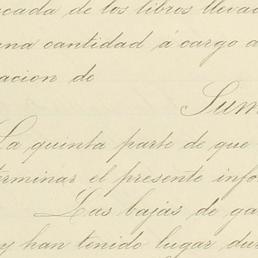 cada de los libros llevad
una cantidad á cargo a
acion de
Sum
La quinta parte de que
erminar el presente info
Las bajas de ga
y han tenido lugar dur